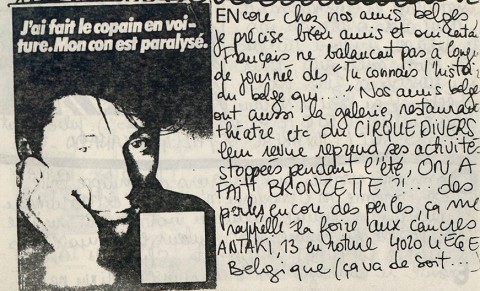 J'ai fait le copain en voi-
ture. Mon con est paralysé.
ENcore chez nos amis belges
je précise bien amis et oui certa
Français ne balancait pas à long
de journée des "Tu connais l'histoi
du belge qui...." Nos amis belge
ont aussi la galerie, restaurant
théatre etc du CIRQUE DIVERS
leur revue reprend ses activités
stoppées pendant l'été, ON A
FAIT BRONZETTE ?!... des
perles encore des perles, ça me
rappelle la foire aux cancres
ANTAKI, 13 en roture 4020 LIEGE
Belgique (ça va de soit...)